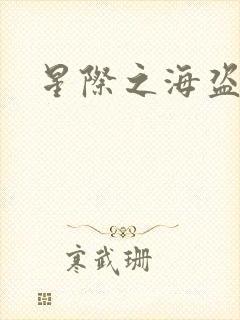 星際之海盜
寒武珊